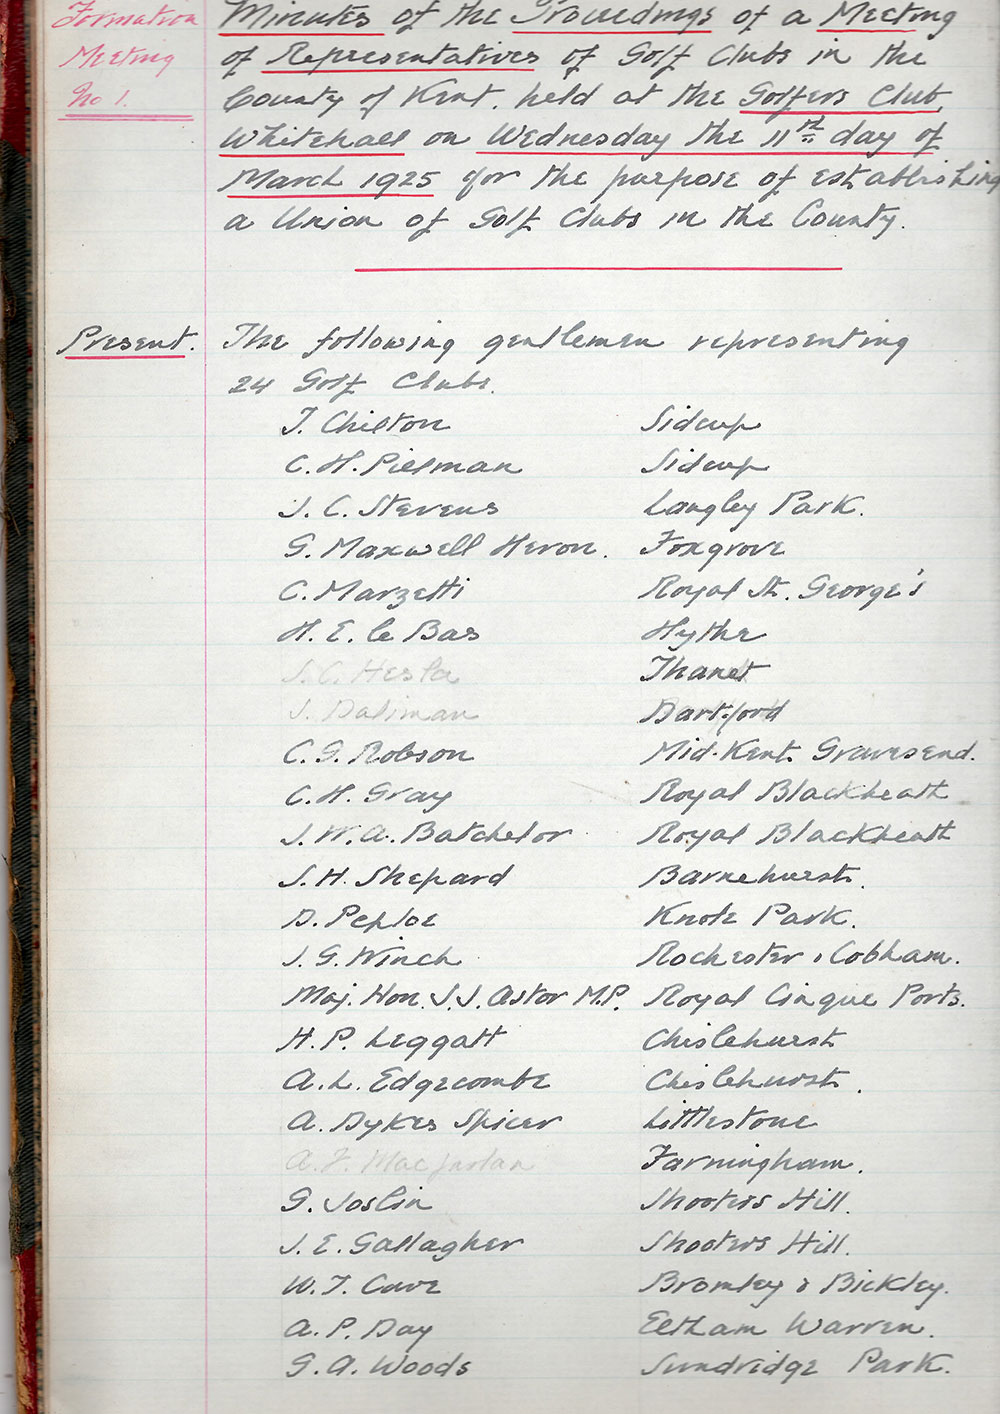 Formation
Meeting
No 1.
Minutes of the Proceedings of a Meeting
of Representatives of Golf Clubs in the
County of Kent. held at the Golfers Club,
Whitehall on Wednesday the 11th day of
March 1925 for the purpose of establishing
a Union of Golf Clubs in the County.
Present. The following gentlemen representing
24 Golf Clubs.
T. Chilton Sidcup
C. H. Pielman Sidcup
J. C. Stevens Langley Park.
G. Maxwell Heron. Foxgrove
C. Marzetti Royal St. George's
H. E. le Bas Hythe
J. C. Thanet
J. Dartford
C. G. Robson Mid-Kent. Gravesend.
C. H. Gray Royal Blackheath
J. W. A. Batchelor Royal Blackheath
J. H. Shepard Barnehurst.
D. Peploe Knole Park.
J. G. Winch Rochester & Cobham.
Maj. Hon. J. J. Astor M.P. Royal Cinque Ports.
H. P. Leggatt Chislehurst
A. L. Edgecombe Chislehurst.
A. Dykes Spicer Littlestone
A. F. Macfarlan Farningham.
G. Joslin Shooters Hill.
J. E. Gallagher Shooters Hill.
W. T. Cave Bromley & Bickley.
A. P. Day Eltham Warren.
G. A. Woods Sundridge Park.